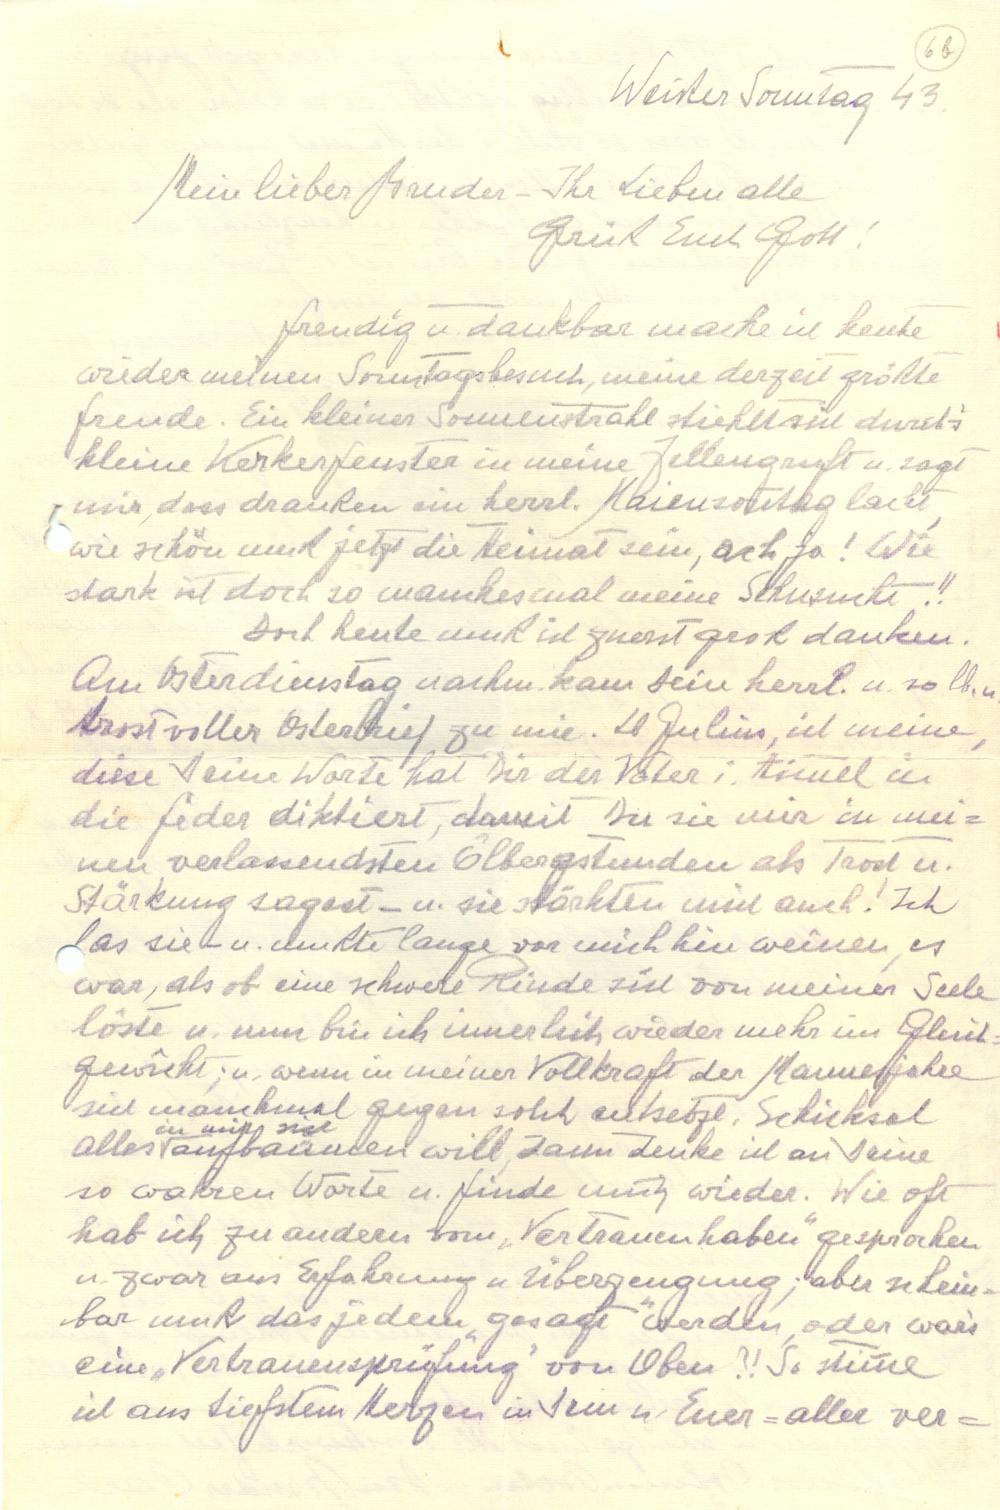 6b
Weißer Sonntag 43.
Mein lieber Bruder – Ihr Lieben alle
Grüß Euch Gott!
Freudig u. dankbar mache ich heute
wieder meinen Sonntagsbesuch, meine derzeit größte
Freude. Ein kleiner Sonnenstrahl stiehlt sich durch's
kleine Kerkerfenster in meine Zellengruft u. sagt
mir, dass draußen ein herrl. Maiensontag lacht,
wie schön muß jetzt die Heimat sein, ach ja! Wie
stark ist doch so manchesmal meine Sehnsucht!!
Doch heute muß ich zuerst groß danken.
Am Osterdienstag nachm. kam Dein herrl. u. so lb. u.
trostvoller Osterbrief zu mir. Julius, ich meine,
diese Deine Worte hat Dir der Vater i. Himel in
die Feder diktiert, damit Du sie mir in mei=
nen verlassendsten Ölbergstunden als Trost u.
Stärkung sagest – u. sie stärkten mich auch! Ich
las sie – u. mußte lange vor mich hin weinen, es
war, als ob eine schwere Rinde sich von meiner Seele
löste u. nun bin ich innerlich wieder mehr im Gleich=
gewicht; u. wenn in meiner Vollkraft der Mannesjahre
sich manchmal gegen solch entsetzl. Schicksal
alles in mir sich aufbäumen will, dann denke ich an Deine
so wahren Worte u. finde mich wieder. Wie oft
hab ich zu andern vom „Vertrauen haben" gesprochen
u. zwar aus Erfahrung u. Überzeugung; aber schein=
bar muß das jedem „gesagt" werden, oder war's
eine „Vertrauensprüfung" von Oben?! So stime
ich aus tiefstem Herzen in Dein u. Euer = aller ver=